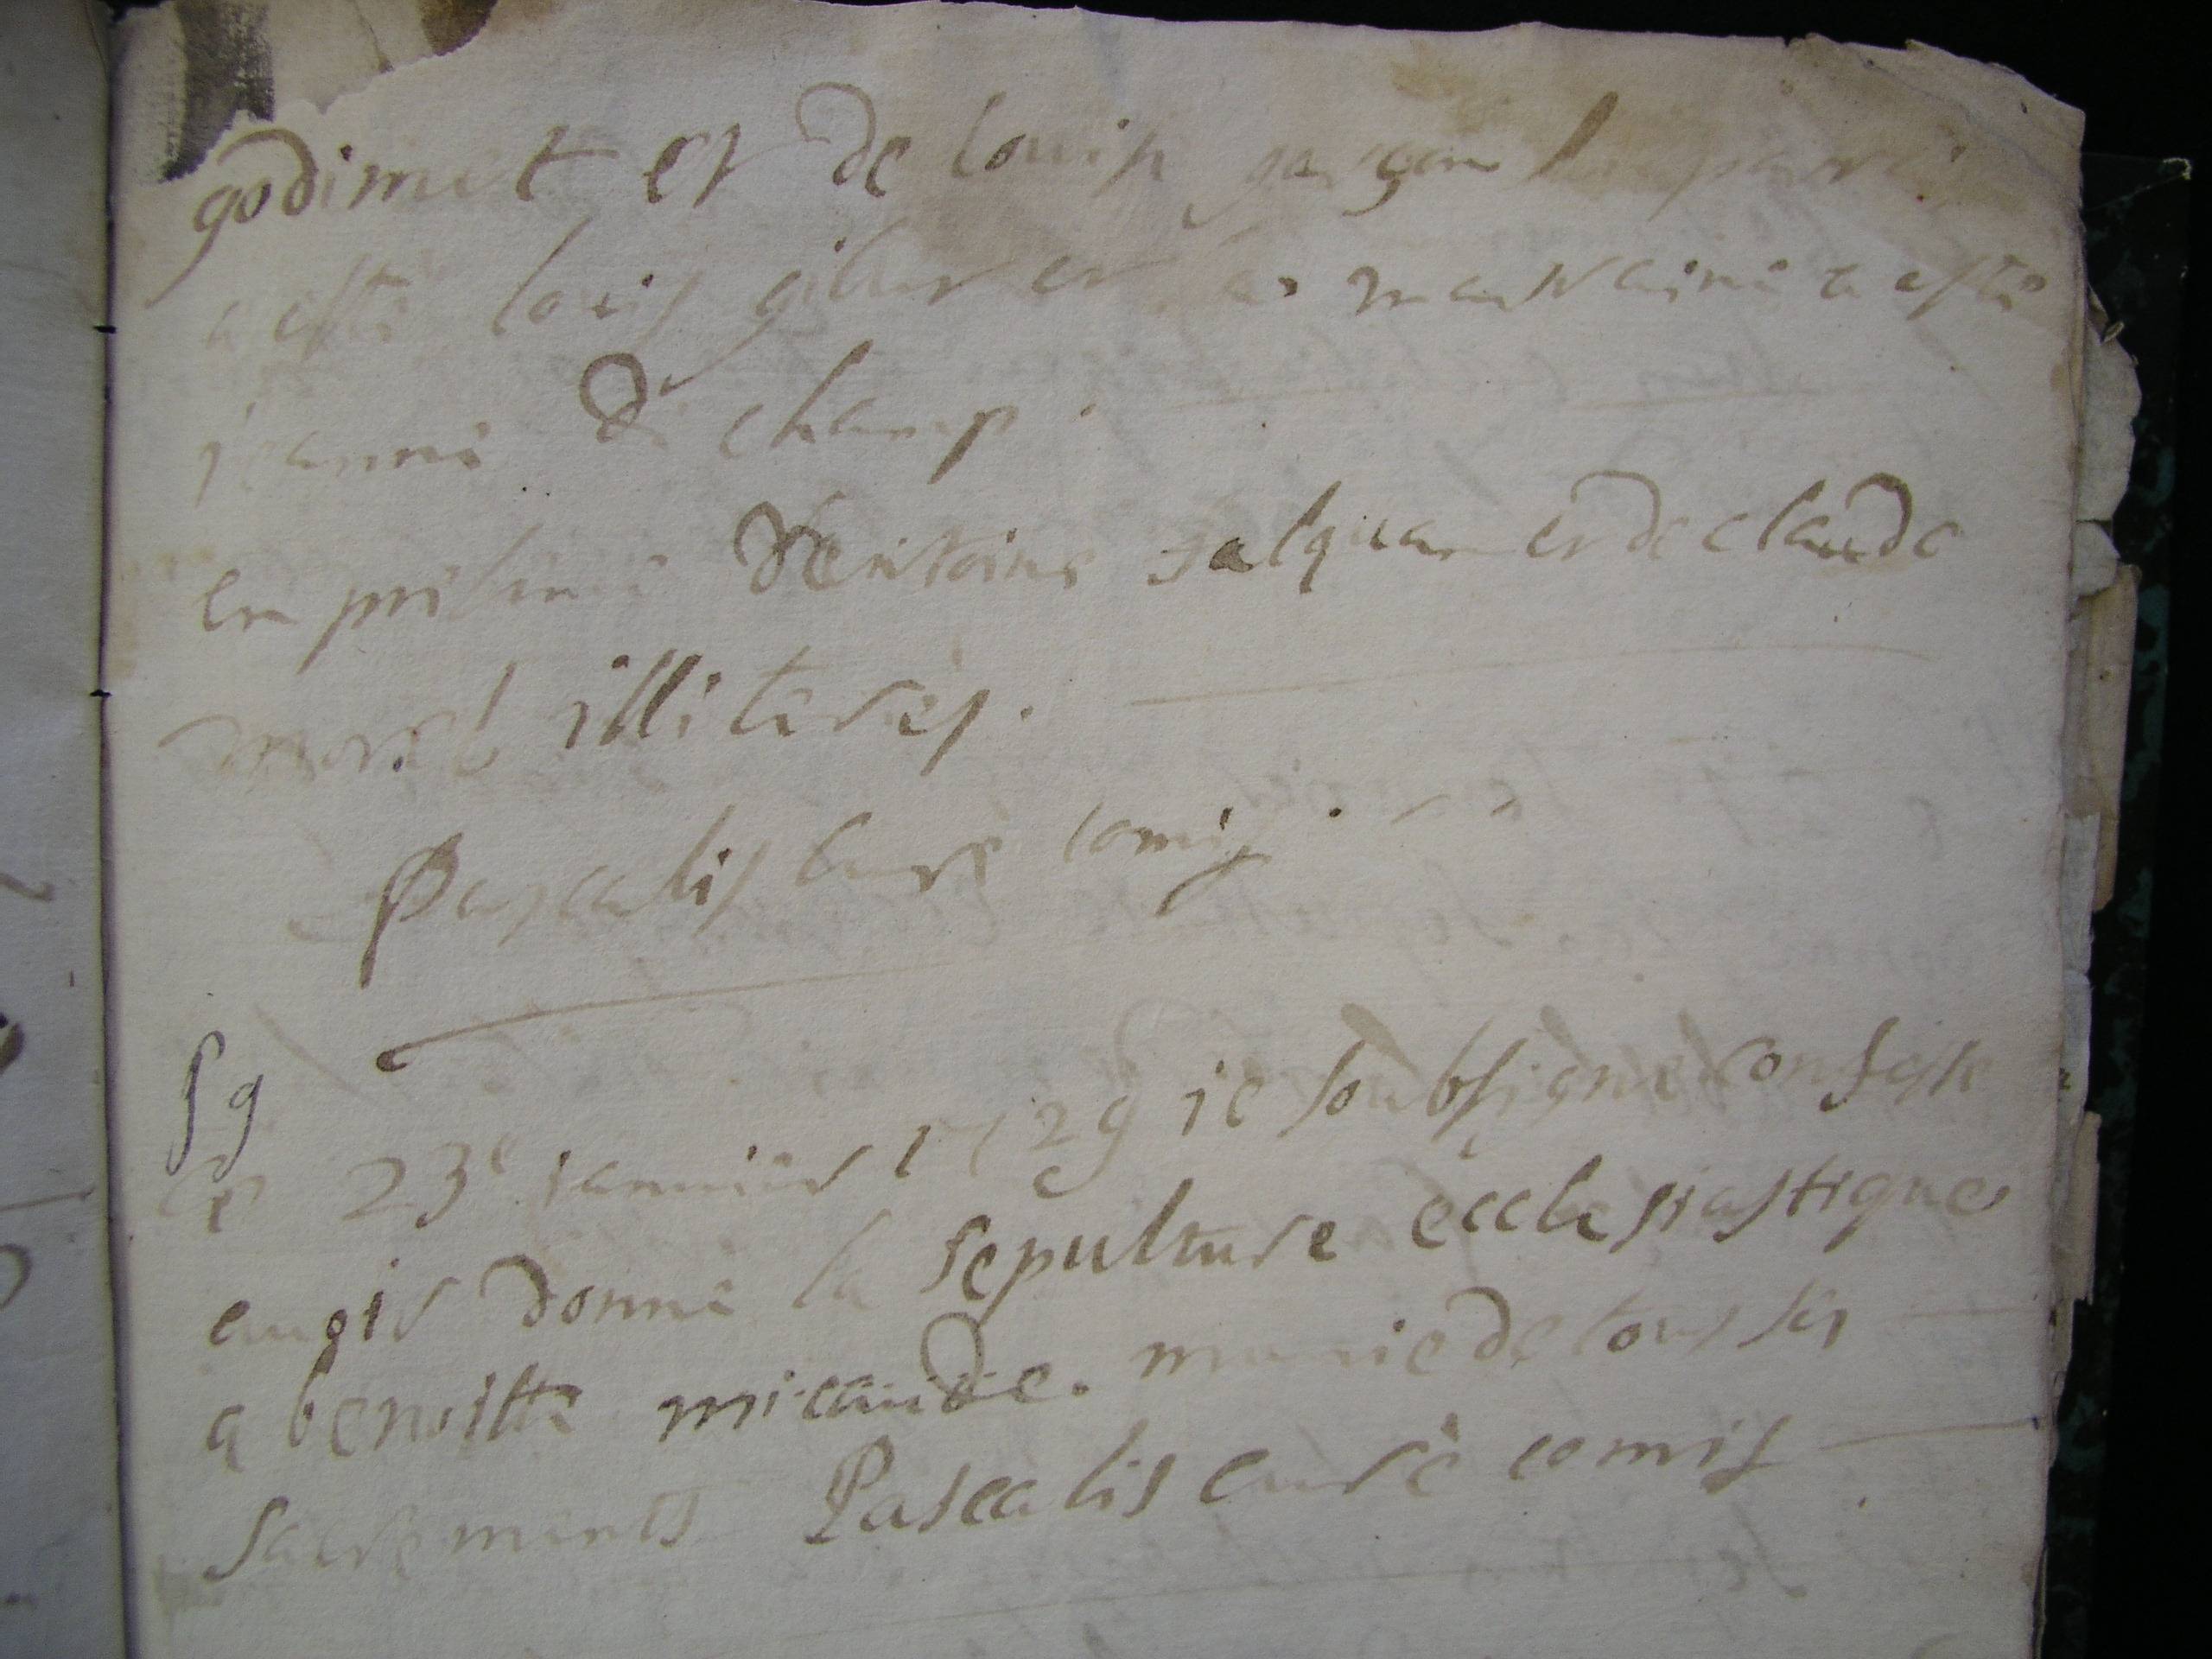 godimet et de louise gascon le parein
a esté louis gibert et la marraine a esté
jeanne de champ.
en présence d'entoine galquan et de claude
morel illiterés.
Pascalis curé comis.
Sg
Ce 23e ianuier 1729 ie soubsigne confesse
auoir donné la sepulture ecclesiastique
a benoitte micaude. munie de tous ses
sacrements Pascalis curé comis